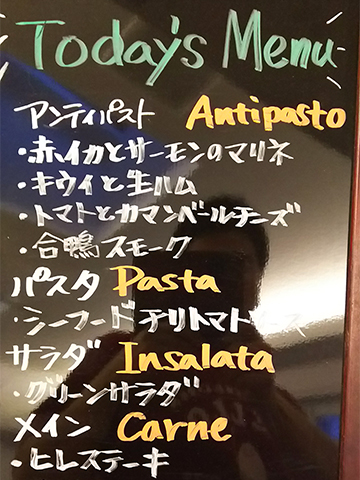 Today's Menu
アンティパスト Antipasto
・赤イカとサーモンのマリネ
・キウイと生ハム
・トマトとカマンベールチーズ
・合鴨スモーク
パスタ Pasta
・シーフード チリトマトソース
サラダ Insalata
・グリーンサラダ
メイン Carne
・ヒレステーキ